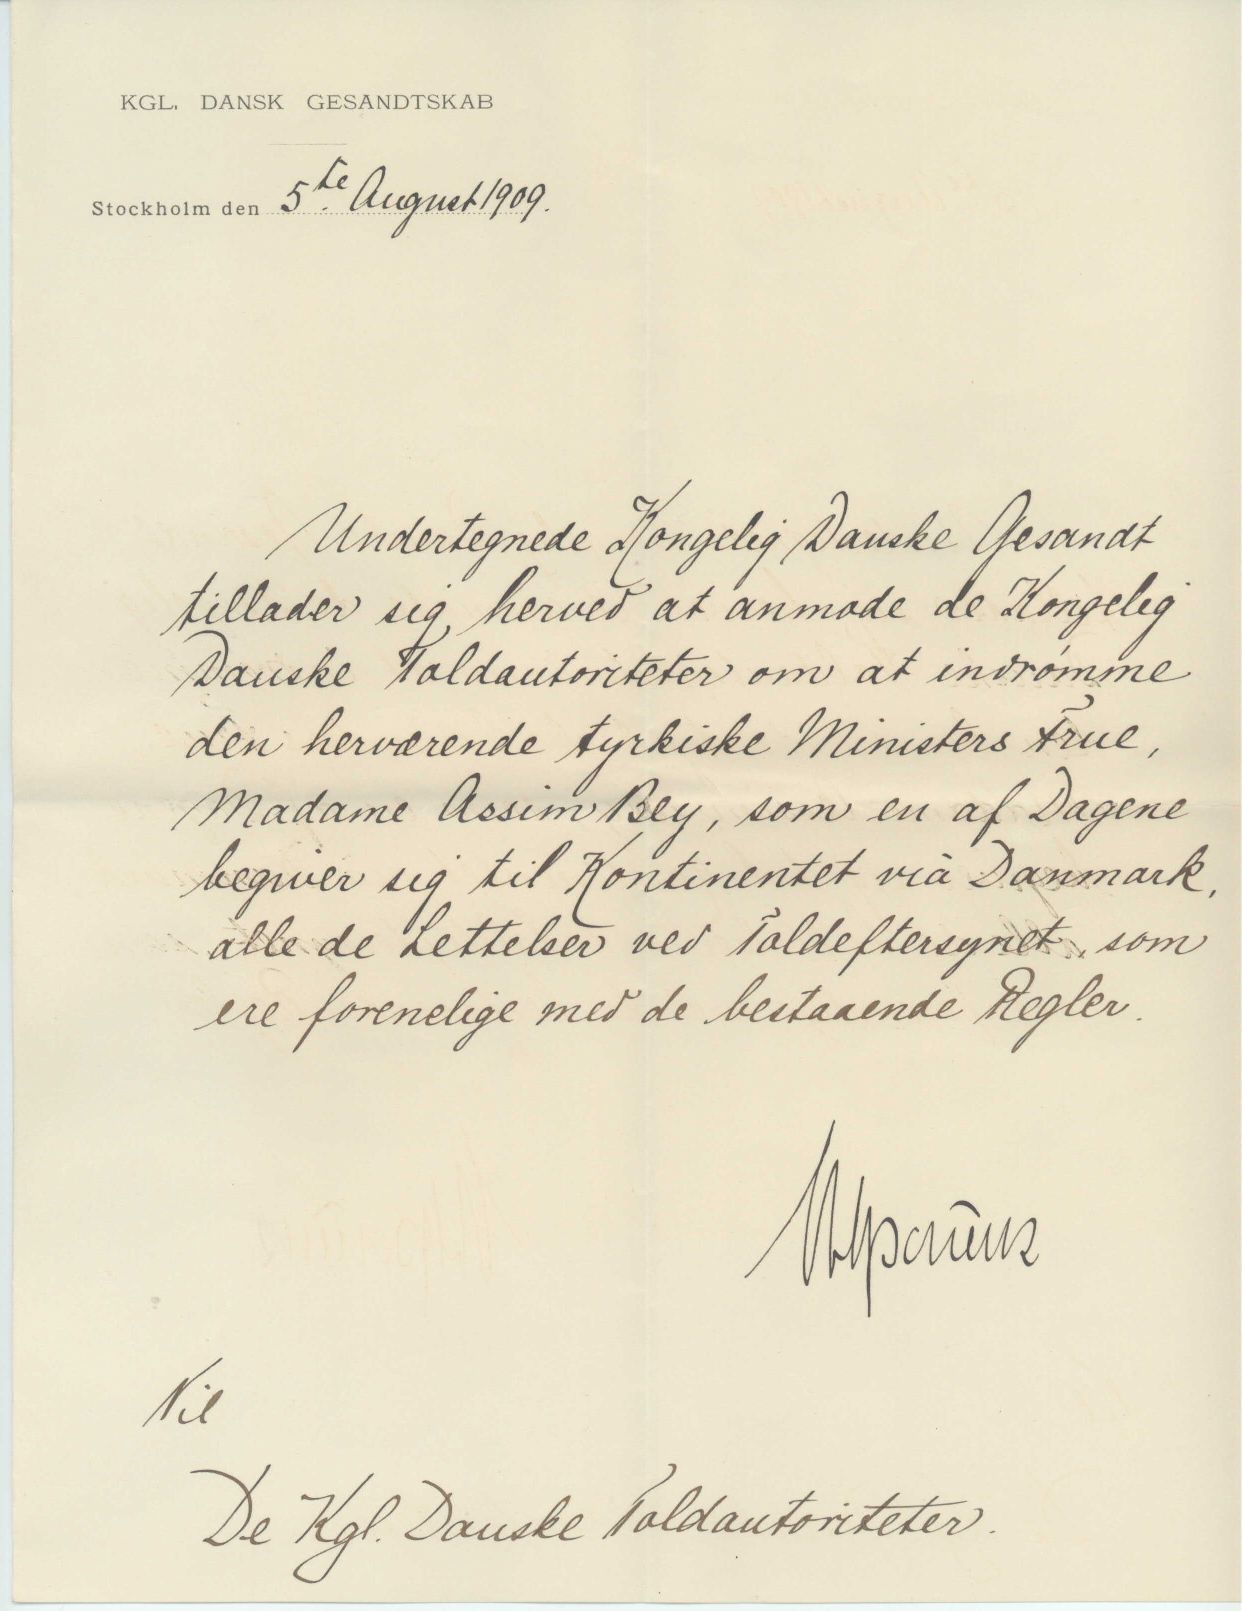 KGL. DANSK GESANDTSKAB
Stockholm den 5te August 1909.
Undertegnede Kongelig Danske Gesandt
tillader sig herved at anmode de Kongelig
Danske Toldautoriteter om at indrømme
den herværende tyrkiske Ministers Frue,
Madame Assim Bey, som en af Dagene
begiver sig til Kontinentet viâ Danmark,
alle de Lettelser ved Toldeftersynet, som
ere forenelige med de bestaaende Regler.
Til
De Kgl. Danske Toldautoriteter.